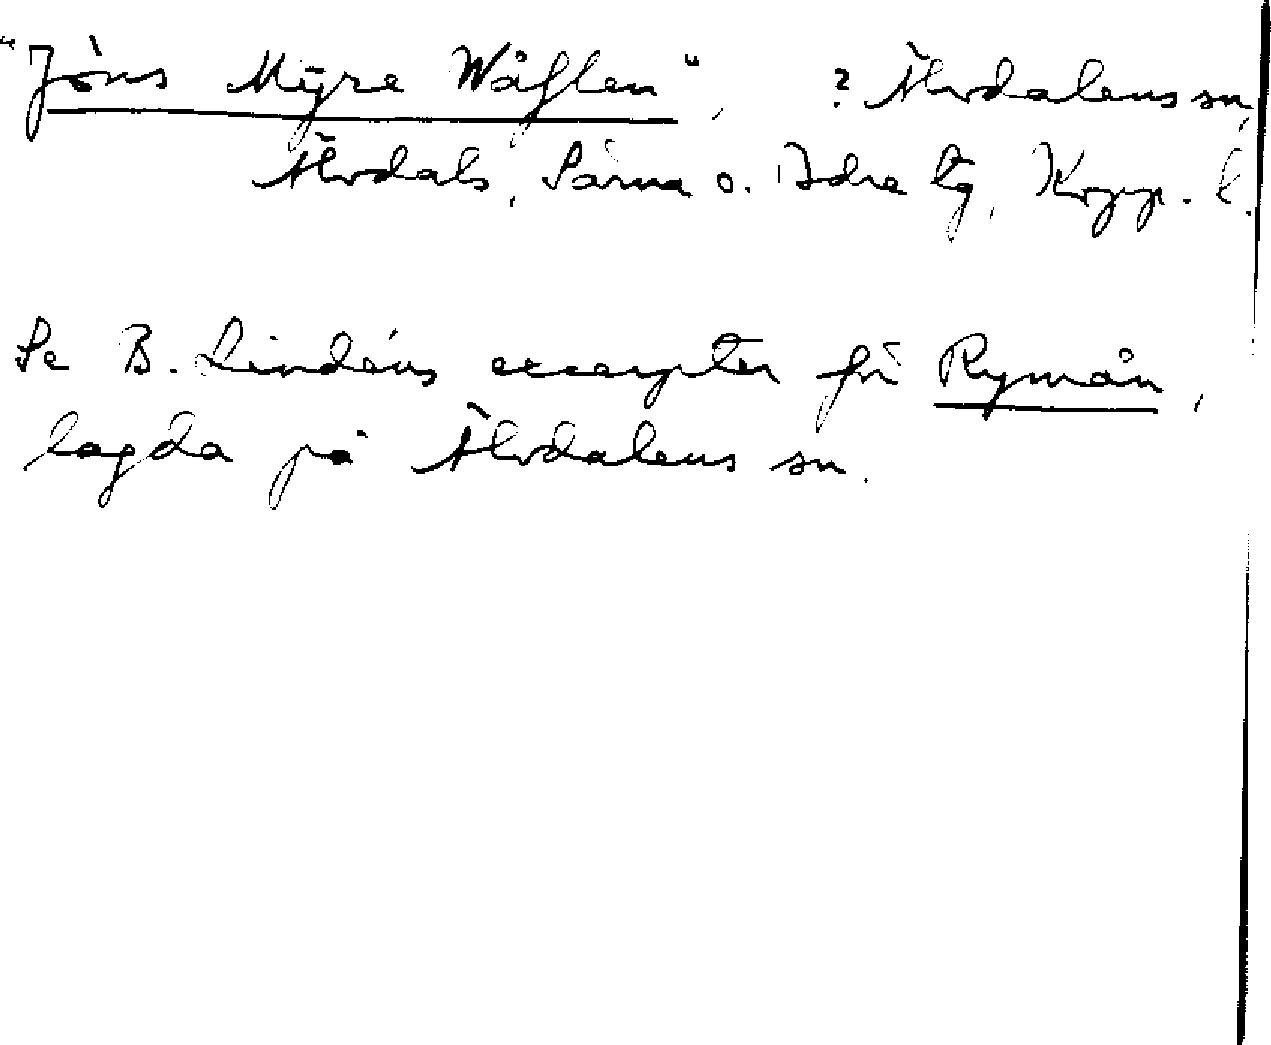 "Jöns Myre Wåhlen", ? Älvdalens sn,
Älvdals, Särna o. Idre tg, Kopp. l.
Se B. Lindéns excerpter för Rymån,
lagda på Älvdalens sn.